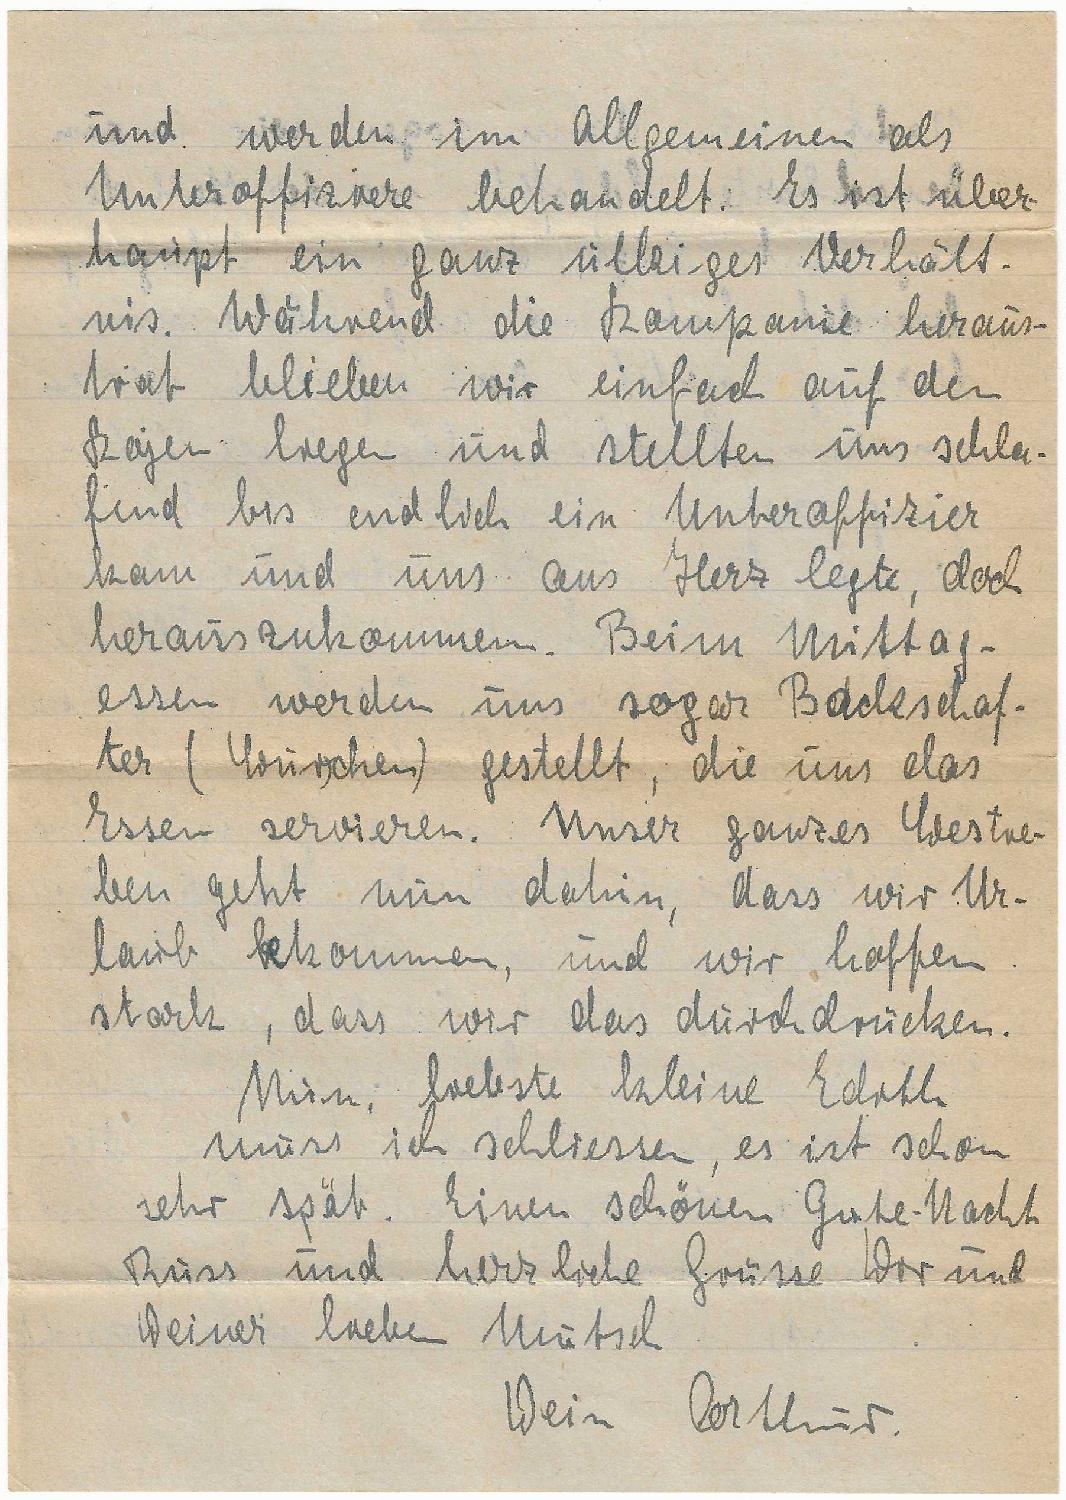 und werden im Allgemeinen als
Unteroffiziere behandelt. Es ist über-
haupt ein ganz ulkiges Verhält-
nis. Während die Kompanie heraus-
trat blieben wir einfach auf den
Kojen liegen und stellten uns schla-
fend bis endlich ein Unteroffizier
kam und uns ans Herz legte, doch
herauszukommen. Beim Mittag-
essen werden uns sogar Backschaf-
ter ( ) gestellt, die uns das
Essen servieren. Unser ganzes Bestre-
ben geht nun dahin, dass wir Ur-
laub bekommen, und wir hoffen
stark, dass wir das durchdrücken.
Nun, liebste kleine Edith
muss ich schliessen, es ist schon
sehr spät. Einen schönen Gute-Nacht
Kuss und herzliche Grüsse Dir und
Deiner lieben Mutsch
Dein Arthur.